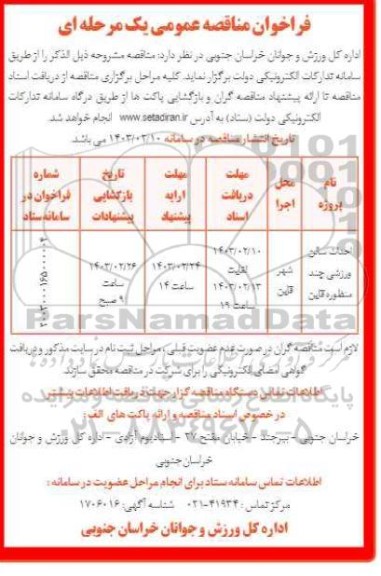 فراخوان مناقصه عمومی یک مرحله ای
اداره کل ورزش و جوانان خراسان جنوبی در نظر دارد: مناقصه مشروحه ذیل الذکر را از طریق
سامانه تدارکات الکترونیکی دولت برگزار نماید. کلیه مراحل برگزاری مناقصه از دریافت اسناد
مناقصه تا ارائه پیشنهاد مناقصه گران و بازگشایی پاکت ها از طریق درگاه سامانه تدارکات
الکترونیکی دولت (ستاد) به آدرس www.setadiran.ir انجام خواهد شد.
تاریخ انتشار مناقصه در سامانه ۱۴۰۳/۰۲/۱۰ می باشد.
نام پروژه
محل اجرا
مهلت دریافت اسناد
مهلت ارایه پیشنهاد
تاریخ بازگشایی پیشنهادات
شماره فراخوان در سامانه ستاد
احداث سالن ورزشی چند منظوره قاین
شهر قاین
۱۴۰۳/۰۲/۱۰ لغایت ۱۴۰۳/۰۲/۱۳ ساعت ۱۹
۱۴۰۳/۰۲/۲۴ ساعت ۱۴
۱۴۰۳/۰۲/۲۶ ساعت ۹ صبح
ParsNamadData
لازم است مناقصه گران در صورت عدم عضویت قبلی، مراحل ثبت نام در سایت مذکور و دریافت
گواهی امضای الکترونیکی را برای شرکت در مناقصه محقق سازند.
اطلاعات تماس دستگاه مناقصه گزار جهت دریافت اطلاعات بیشتر
در خصوص اسناد مناقصه و ارائه پاکت های الف:
خراسان جنوبی - بیرجند - خیابان مفتح ۲۷ - استادیوم آزادی - اداره کل ورزش و جوانان
خراسان جنوبی
اطلاعات تماس سامانه ستاد برای انجام مراحل عضویت در سامانه:
مرکز تماس: ۴۱۹۳۴-۰۲۱ شناسه آگهی: ۱۷۰۶۰۱۶
اداره کل ورزش و جوانان خراسان جنوبی